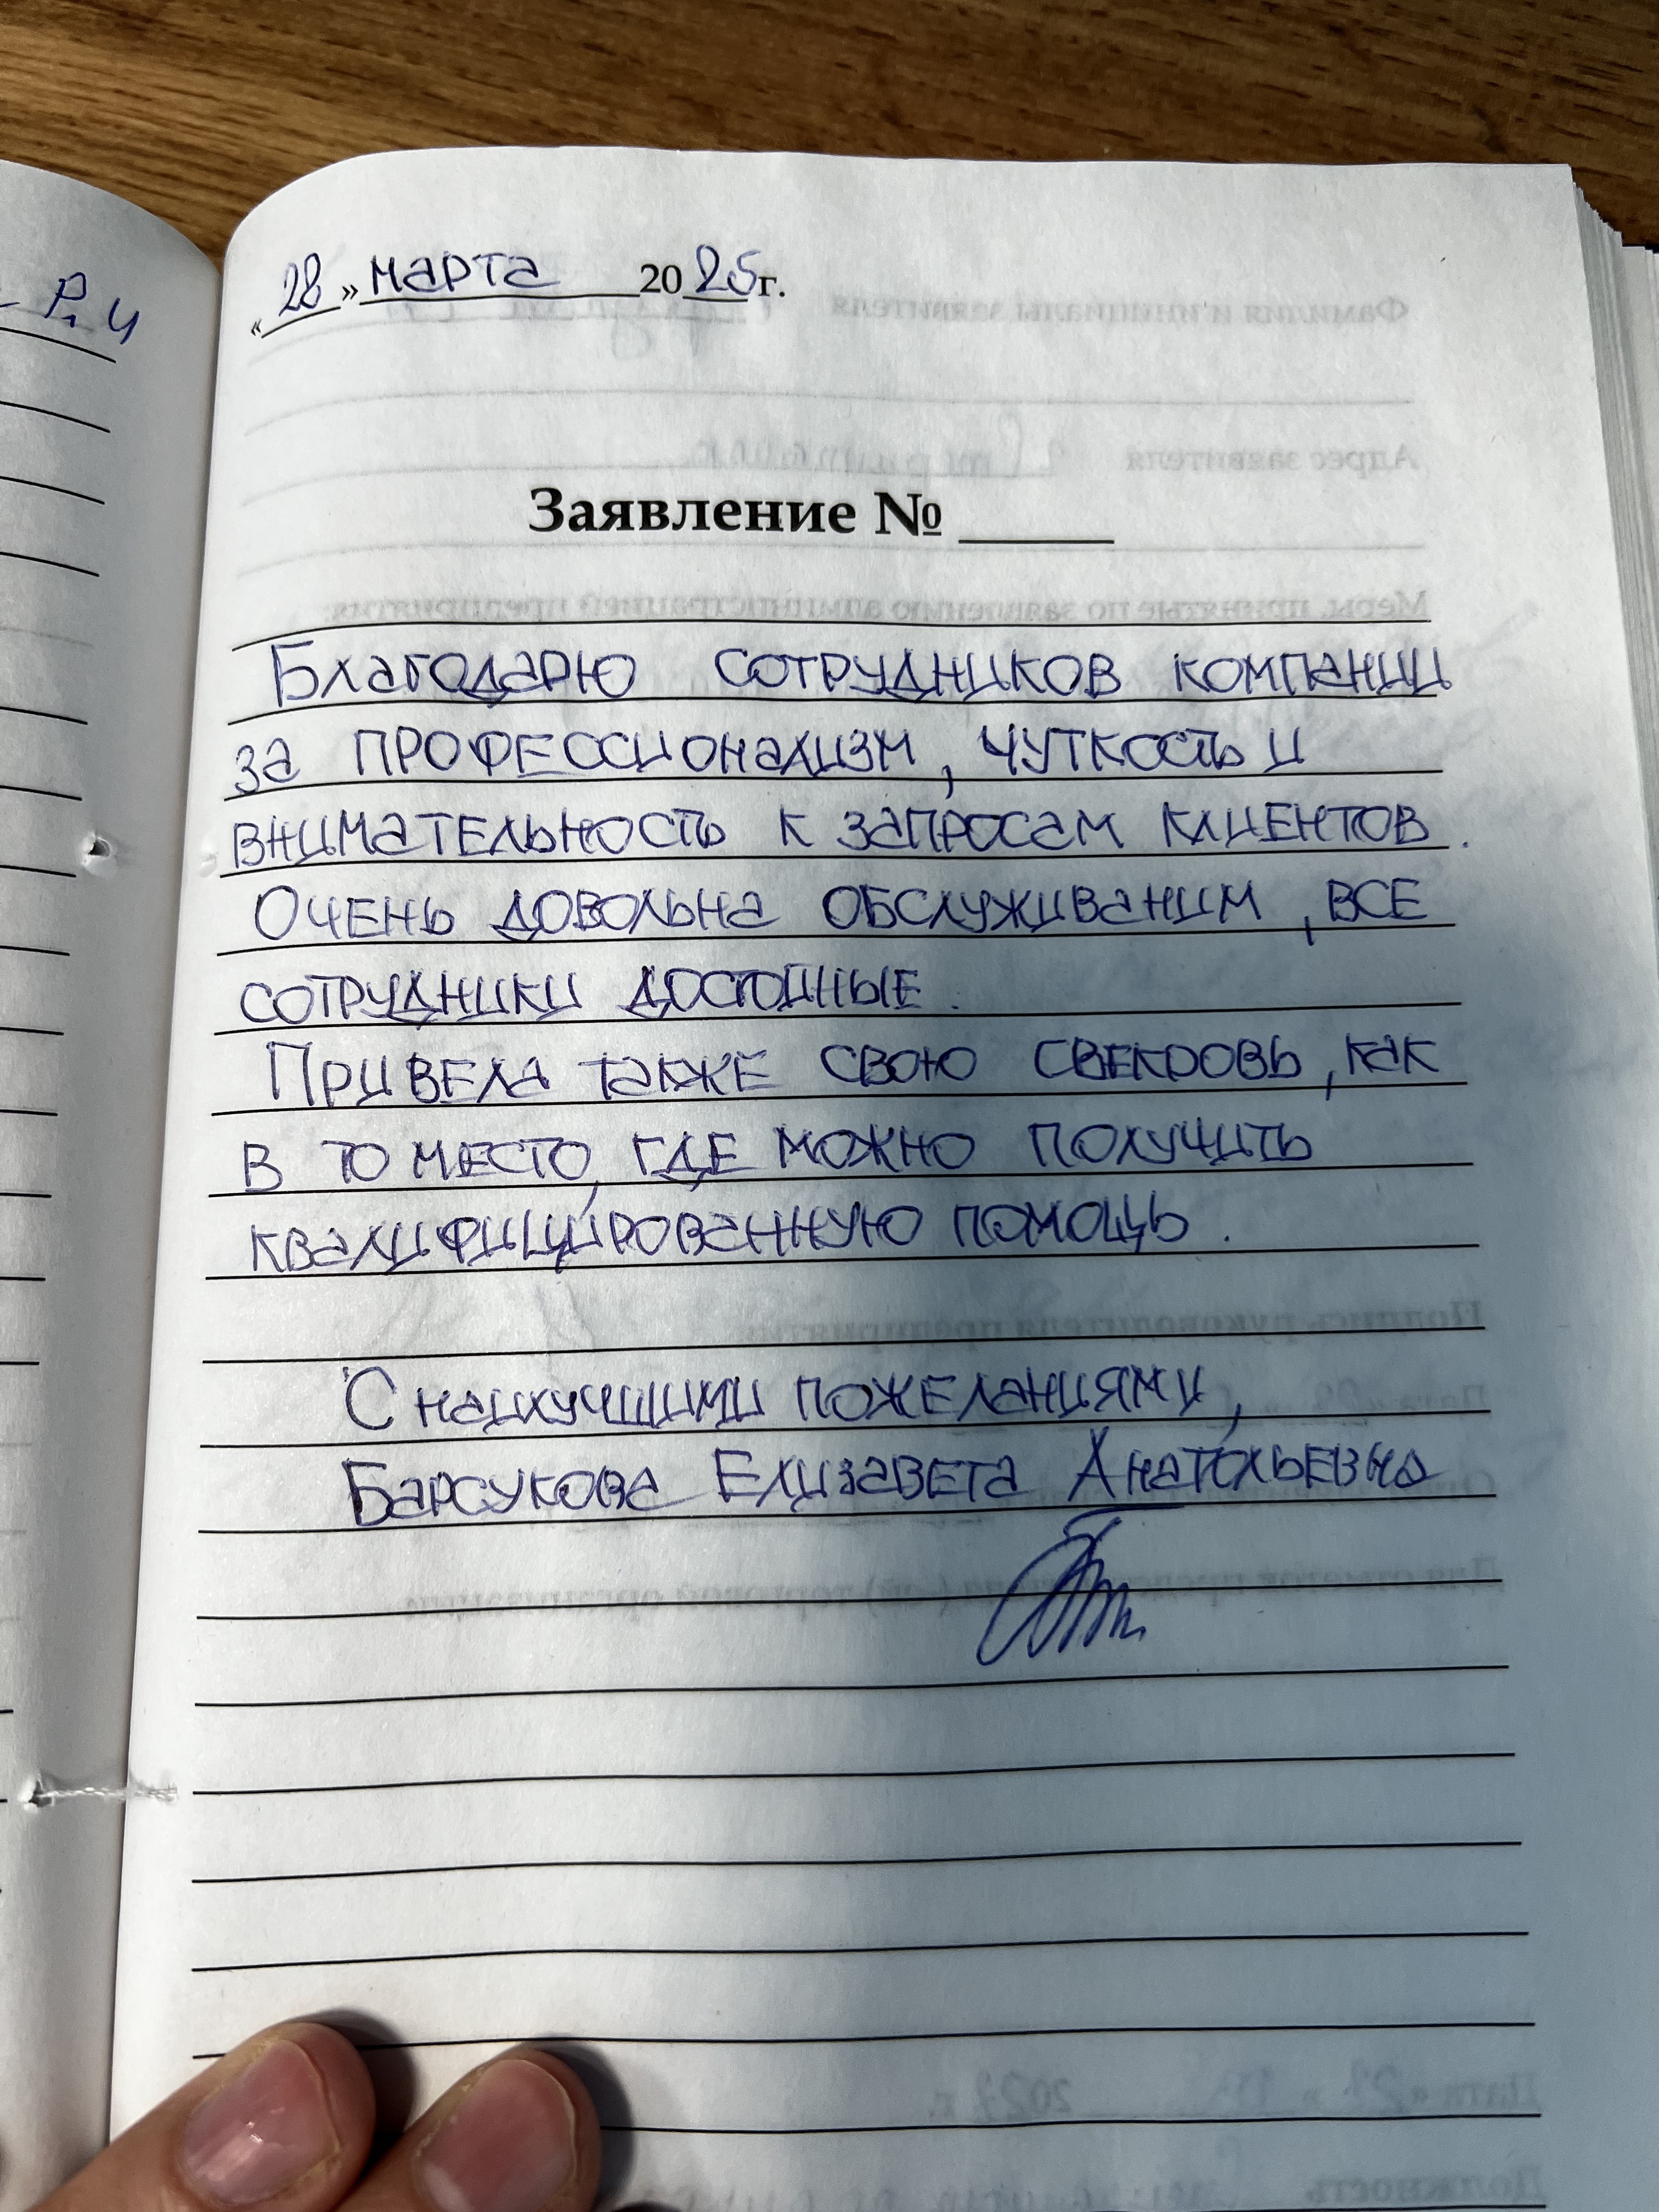 Р. Ч
« 28 » марта 2025г.
Заявление №
Благодарю сотрудников компании
за профессионализм, чуткость и
внимательность к запросам клиентов.
Очень довольна обслуживаним, все
сотрудники достойные.
Привела также свою свекровь, как
в то место, где можно получить
квалифицированную помощь.
С наилучшими пожеланиями,
Барсукова Елизавета Анатольевна